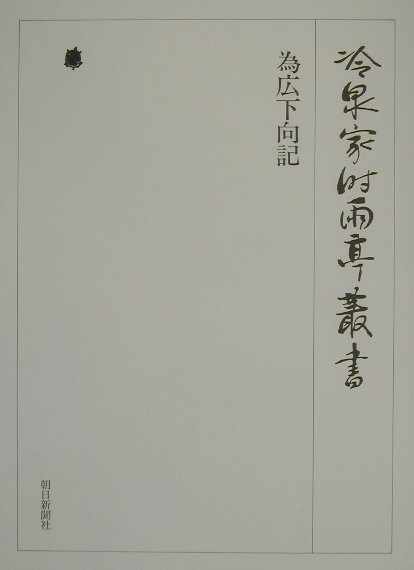 冷泉家時雨亭叢書
為広下向記
朝日新聞社